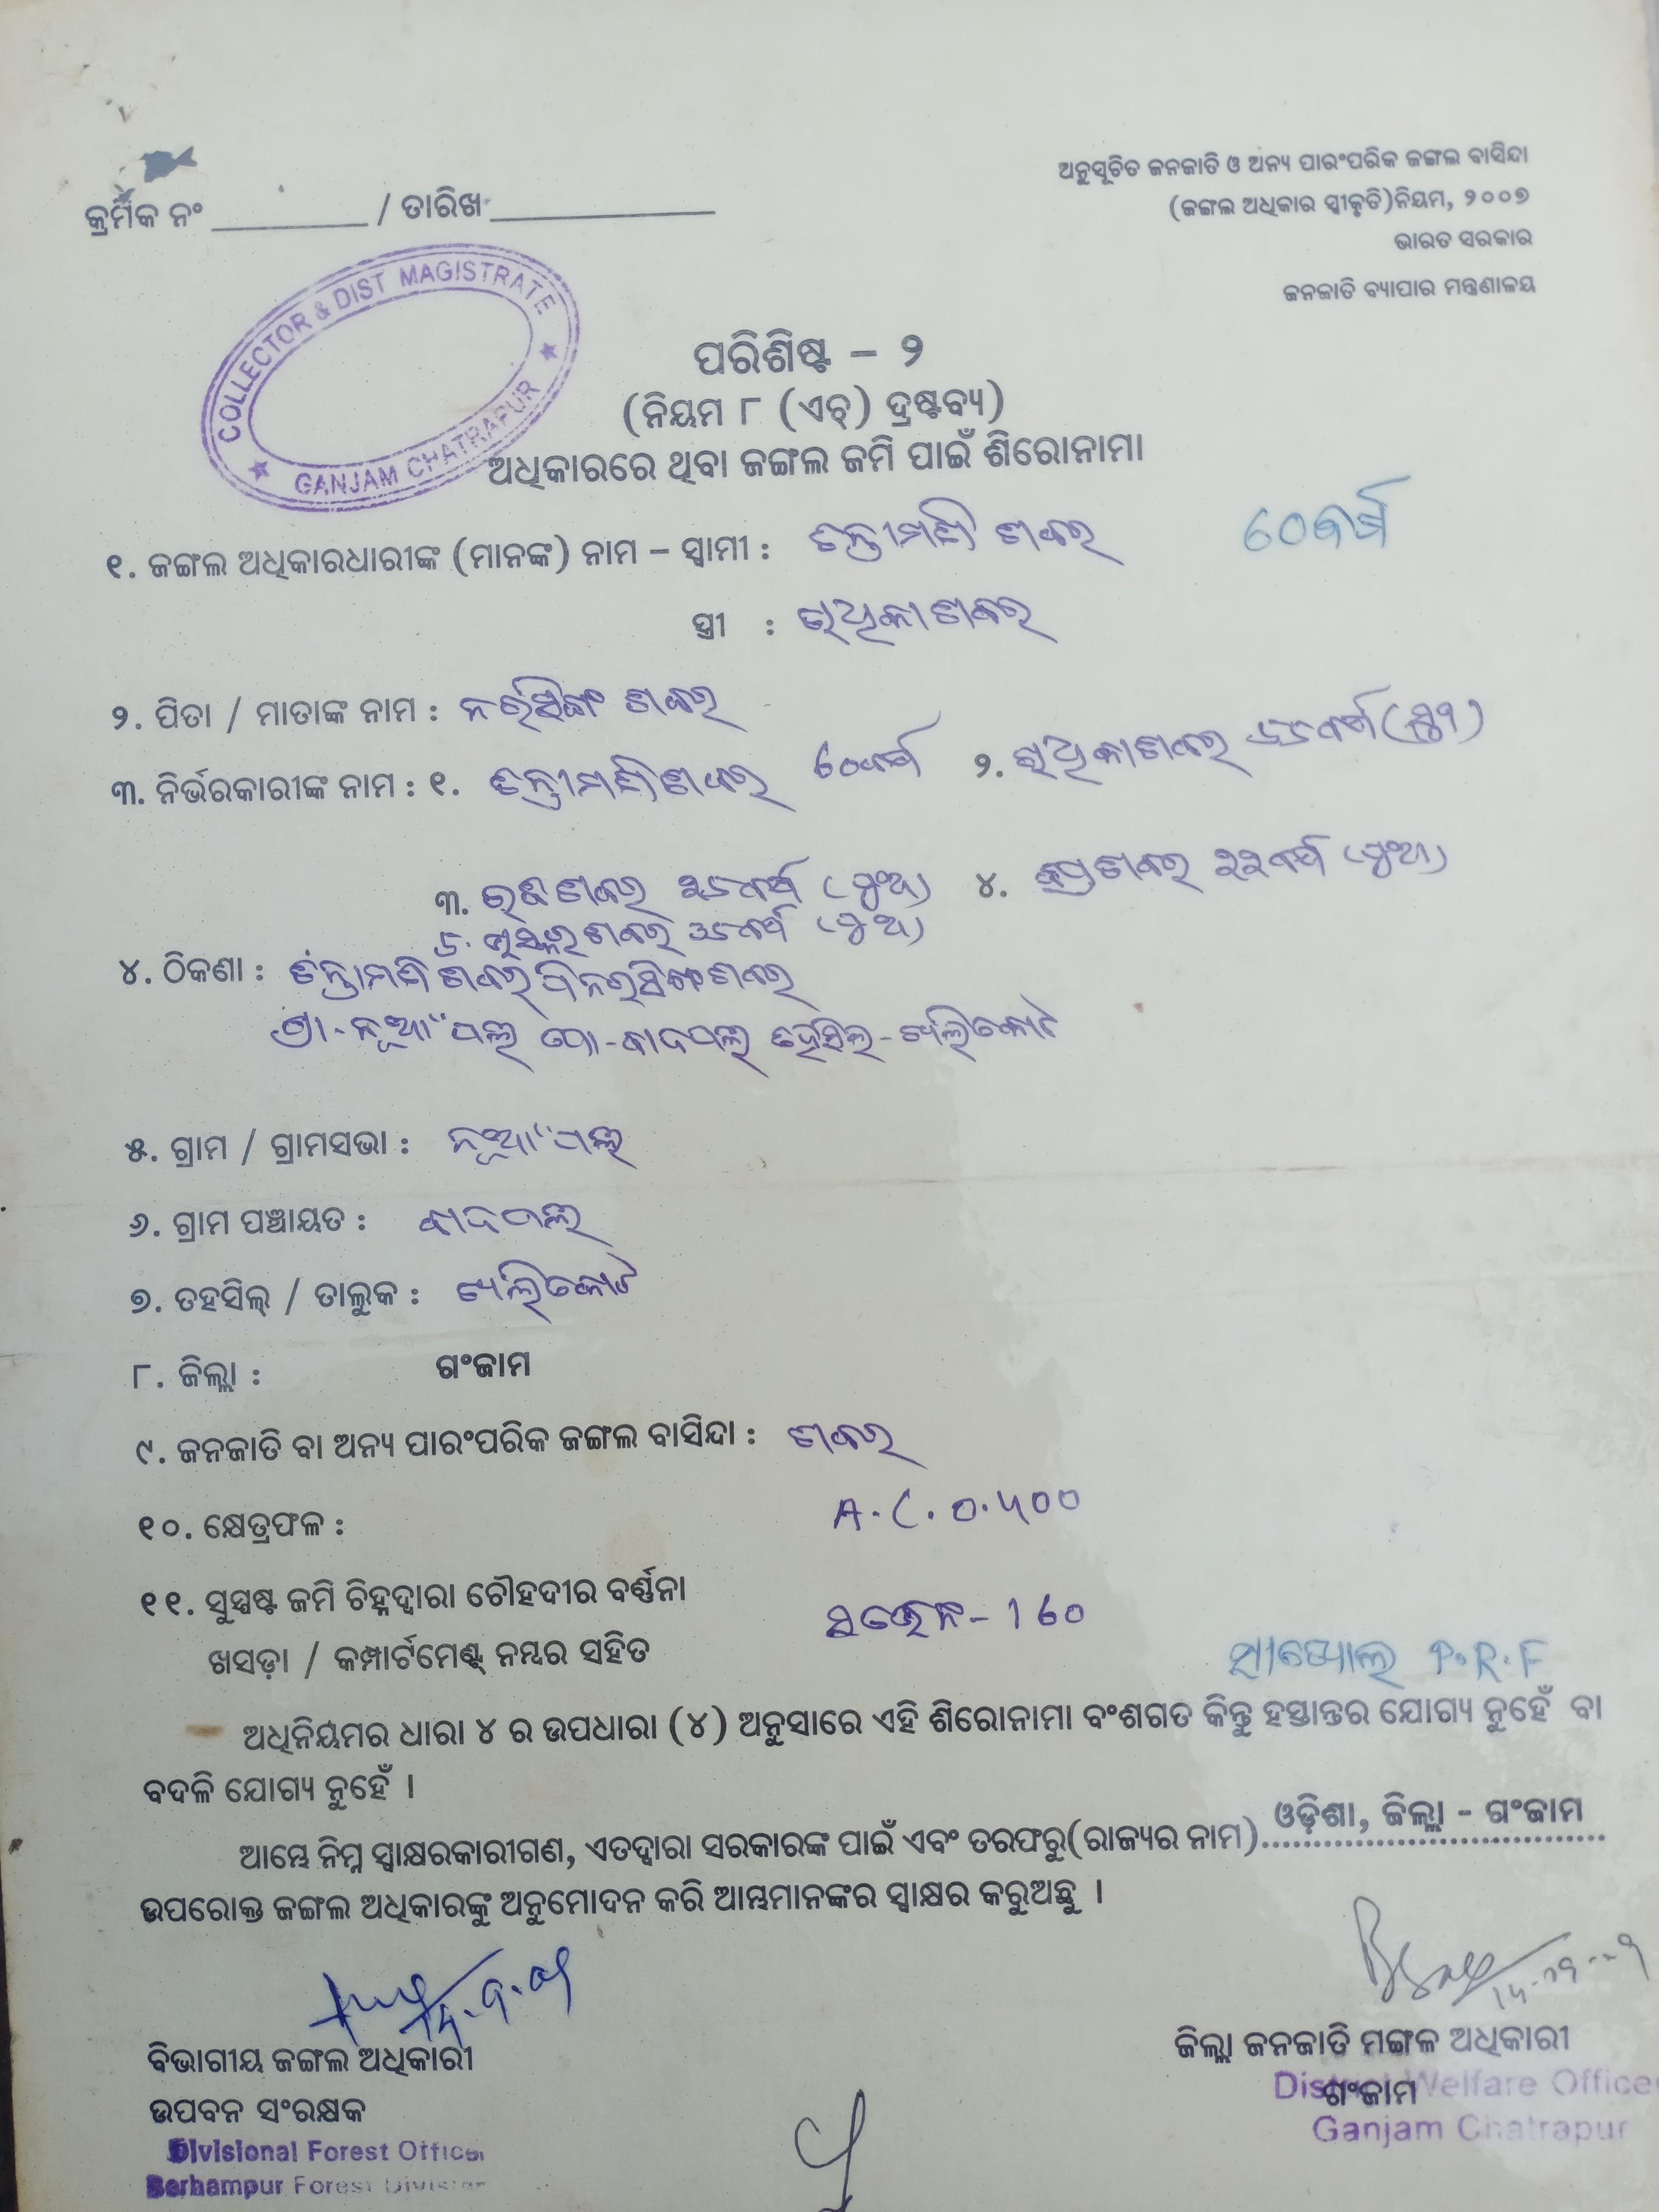 ଅନୁସୂଚିତ ଜନଜାତି ଓ ଅନ୍ୟ ପାରଂପରିକ ଜଙ୍ଗଲ ବାସିନ୍ଦା
(ଜଙ୍ଗଲ ଅଧିକାର ସ୍ୱୀକୃତି)ନିୟମ, ୨୦୦୭
ଭାରତ ସରକାର
ଜନଜାତି ବ୍ୟାପାର ମନ୍ତ୍ରଣାଳୟ
କ୍ରମିକ ନଂ ________ / ତାରିଖ ____________
COLLECTOR & DIST MAGISTRATE
GANJAM CHATRAPUR
ପରିଶିଷ୍ଟ – ୨
(ନିୟମ ୮ (ଏଚ୍) ଦ୍ରଷ୍ଟବ୍ୟ)
ଅଧିକାରରେ ଥିବା ଜଙ୍ଗଲ ଜମି ପାଇଁ ଶିରୋନାମା
୧. ଜଙ୍ଗଲ ଅଧିକାରଧାରୀଙ୍କ (ମାନଙ୍କ) ନାମ – ସ୍ୱାମୀ : ଶବର ୬୦ବର୍ଷ
ସ୍ତ୍ରୀ : ଶବର
୨. ପିତା / ମାତାଙ୍କ ନାମ : ଶବର
୩. ନିର୍ଭରକାରୀଙ୍କ ନାମ : ୧. ଶବର ୬୦ବର୍ଷ ୨. ଶବର (ସ୍ତ୍ରୀ)
୩. ଶବର (ପୁଅ) ୪. ଶବର (ପୁଅ)
୫. ଶବର (ପୁଅ)
୪. ଠିକଣା :
ଗ୍ରା-ନୂଆଁପଲ୍ଲୀ ପୋ- ତହସିଲ-ଖଲିକୋଟ
୫. ଗ୍ରାମ / ଗ୍ରାମସଭା : ନୂଆଁପଲ୍ଲୀ
୬. ଗ୍ରାମ ପଞ୍ଚାୟତ :
୭. ତହସିଲ୍ / ତାଲୁକ : ଖଲିକୋଟ
୮. ଜିଲ୍ଲା : ଗଂଜାମ
୯. ଜନଜାତି ବା ଅନ୍ୟ ପାରଂପରିକ ଜଙ୍ଗଲ ବାସିନ୍ଦା : ଶବର
୧୦. କ୍ଷେତ୍ରଫଳ : A.C. 0.500
୧୧. ସୁସ୍ପଷ୍ଟ ଜମି ଚିହ୍ନଦ୍ୱାରା ଚୌହଦୀର ବର୍ଣ୍ଣନା
ଖସଡ଼ା / କମ୍ପାର୍ଟମେଣ୍ଟ୍ ନମ୍ବର ସହିତ - 160 P.R.F
ଅଧିନିୟମର ଧାରା ୪ ର ଉପଧାରା (୪) ଅନୁସାରେ ଏହି ଶିରୋନାମା ବଂଶଗତ କିନ୍ତୁ ହସ୍ତାନ୍ତର ଯୋଗ୍ୟ ନୁହେଁ ବା
ବଦଳି ଯୋଗ୍ୟ ନୁହେଁ ।
ଆମ୍ଭେ ନିମ୍ନ ସ୍ୱାକ୍ଷରକାରୀଗଣ, ଏତଦ୍ୱାରା ସରକାରଙ୍କ ପାଇଁ ଏବଂ ତରଫରୁ(ରାଜ୍ୟର ନାମ) ଓଡ଼ିଶା, ଜିଲ୍ଲା - ଗଂଜାମ
ଉପରୋକ୍ତ ଜଙ୍ଗଲ ଅଧିକାରଙ୍କୁ ଅନୁମୋଦନ କରି ଆମ୍ଭମାନଙ୍କର ସ୍ୱାକ୍ଷର କରୁଅଛୁ ।
ବିଭାଗୀୟ ଜଙ୍ଗଲ ଅଧିକାରୀ
ଉପବନ ସଂରକ୍ଷକ
Divisional Forest Officer
Berhampur Forest Division
ଜିଲ୍ଲା ଜନଜାତି ମଙ୍ଗଳ ଅଧିକାରୀ
ଗଂଜାମ
District Welfare Officer
Ganjam Chatrapur